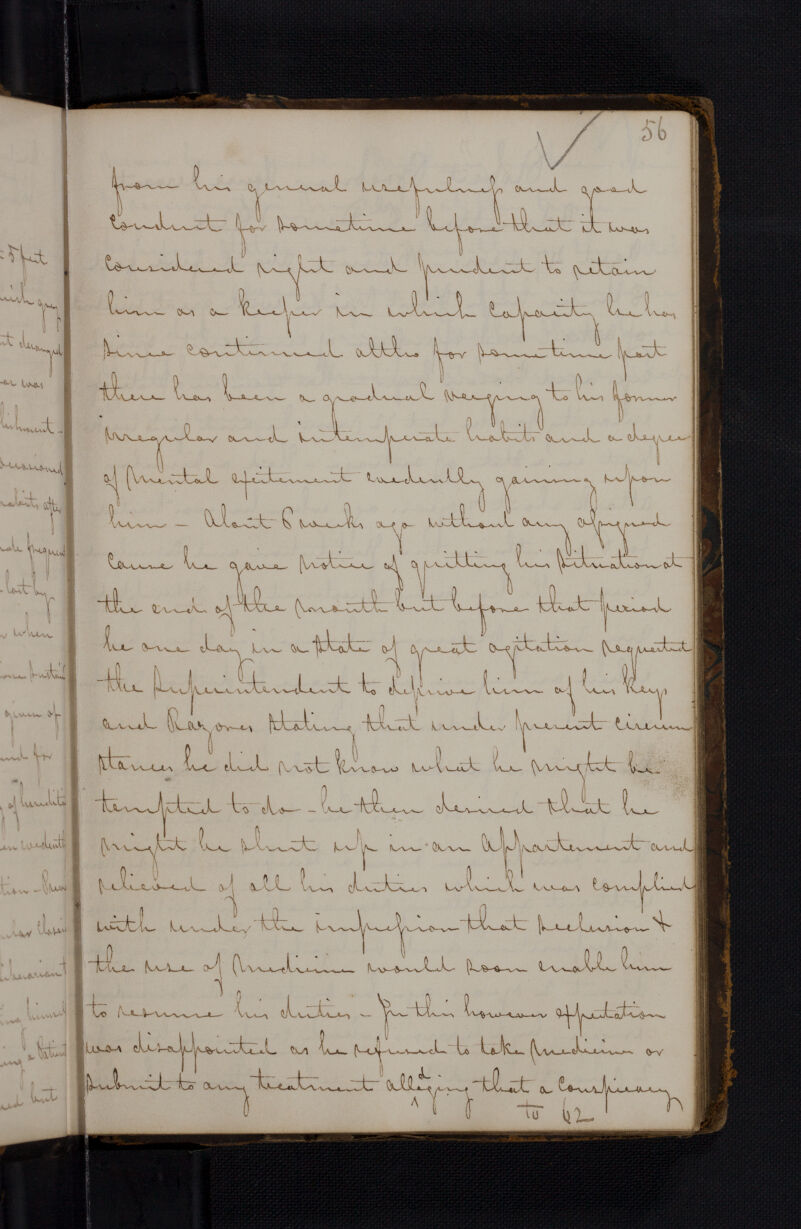 56
from his general usefulness and good
conduct for sometime before that it was
considered right and prudent to retain
him as a keeper in which capacity he has
since continued altho for sometime past
there has been a gradual verging to his former
irregular and intemperate habits and a degree
of mental excitement evidently gaining upon
him - About 6 weeks ago without any assigned
cause he gave notice of quitting his situation at
the end of the month but before that period
he one day in a state of great agitation requested
the Superintendent to deprive him of his keys
and Razores stating that under present circum
stances he did not know what he might be
tempted to do - he then desired that he
might be shut up in an Appartement and
relieved of all his duties which was complied
with under the impression that seclusion &
the use of Medicine would soon enable him
to resume his duties - In this however expectation
was disappointed as he refused to take Medicine or
submit to any treatment alledging that a Conspiracy
to 62
5 feet
deranged
was
occasioned
habits after
lost by
when
given of
and for
of heredita
himself
a Patient
but